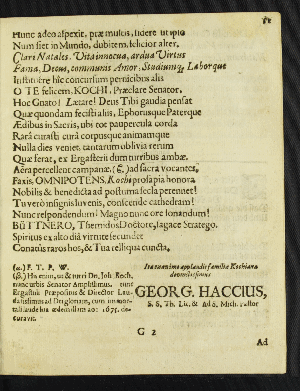 Hunc adeo aspexit, præ multis, sidere utipio
Num siet in Mundo, dubitem, felicior alter.
Clare Natales. Vita innocua, ardua Virtus
Fama, Decus, communis Amor, Studiumq; Laborque
Instituere hîc concursum pernicibus alis
O TE felicem, KOCHI, Præclare Senator,
Hoc Gnato! Lætare! Deus Tibi gaudia pensat
Quæ quondam fecisti alis, Ephorusque Paterque
Ædibus in Sacris, ubi tot paupercula corda
Rarâ curasti curâ corpusque animamque
Nulla dies veniet, tantarum oblivia rerum
Quæ ferat, ex Ergasterii dum turribus ambæ
Aera percellent campanæ, (ϐ) ad sacra vocantes,
Faxis, OMNIPOTENS, Kochi prosapia honora
Nobilis & benedicta ad postuma secla perennet!
Tu verò insignis Iuvenis, conscende cathedram!
Nunc respondendum! Magno nunc ore sonandum!
BüTTNERO, Themidos Doctore, sagace Stratego.
Spiritus ex alto diâ virtute secundet
Conatus raros hos, & Tua reliqua cuncta.
(α) F. T. P. W.
(β) Hæ enim, ut & turri Dn. Joh. Koch,
nunc urbis Senator Amplissimus, tunc
Ergasterii Præpositus & Director Lau-
datissimus ad Dragionam, cum immor-
tali laude sua ædem illam ao: 1675. de-
curavit.
Ita ex animo applaudit familiæ Kochianæ
devotissimus
GEORG. HACCIUS,
S. S. Th. Lic. & Ad S. Mich. Pastor
G 2
Ad